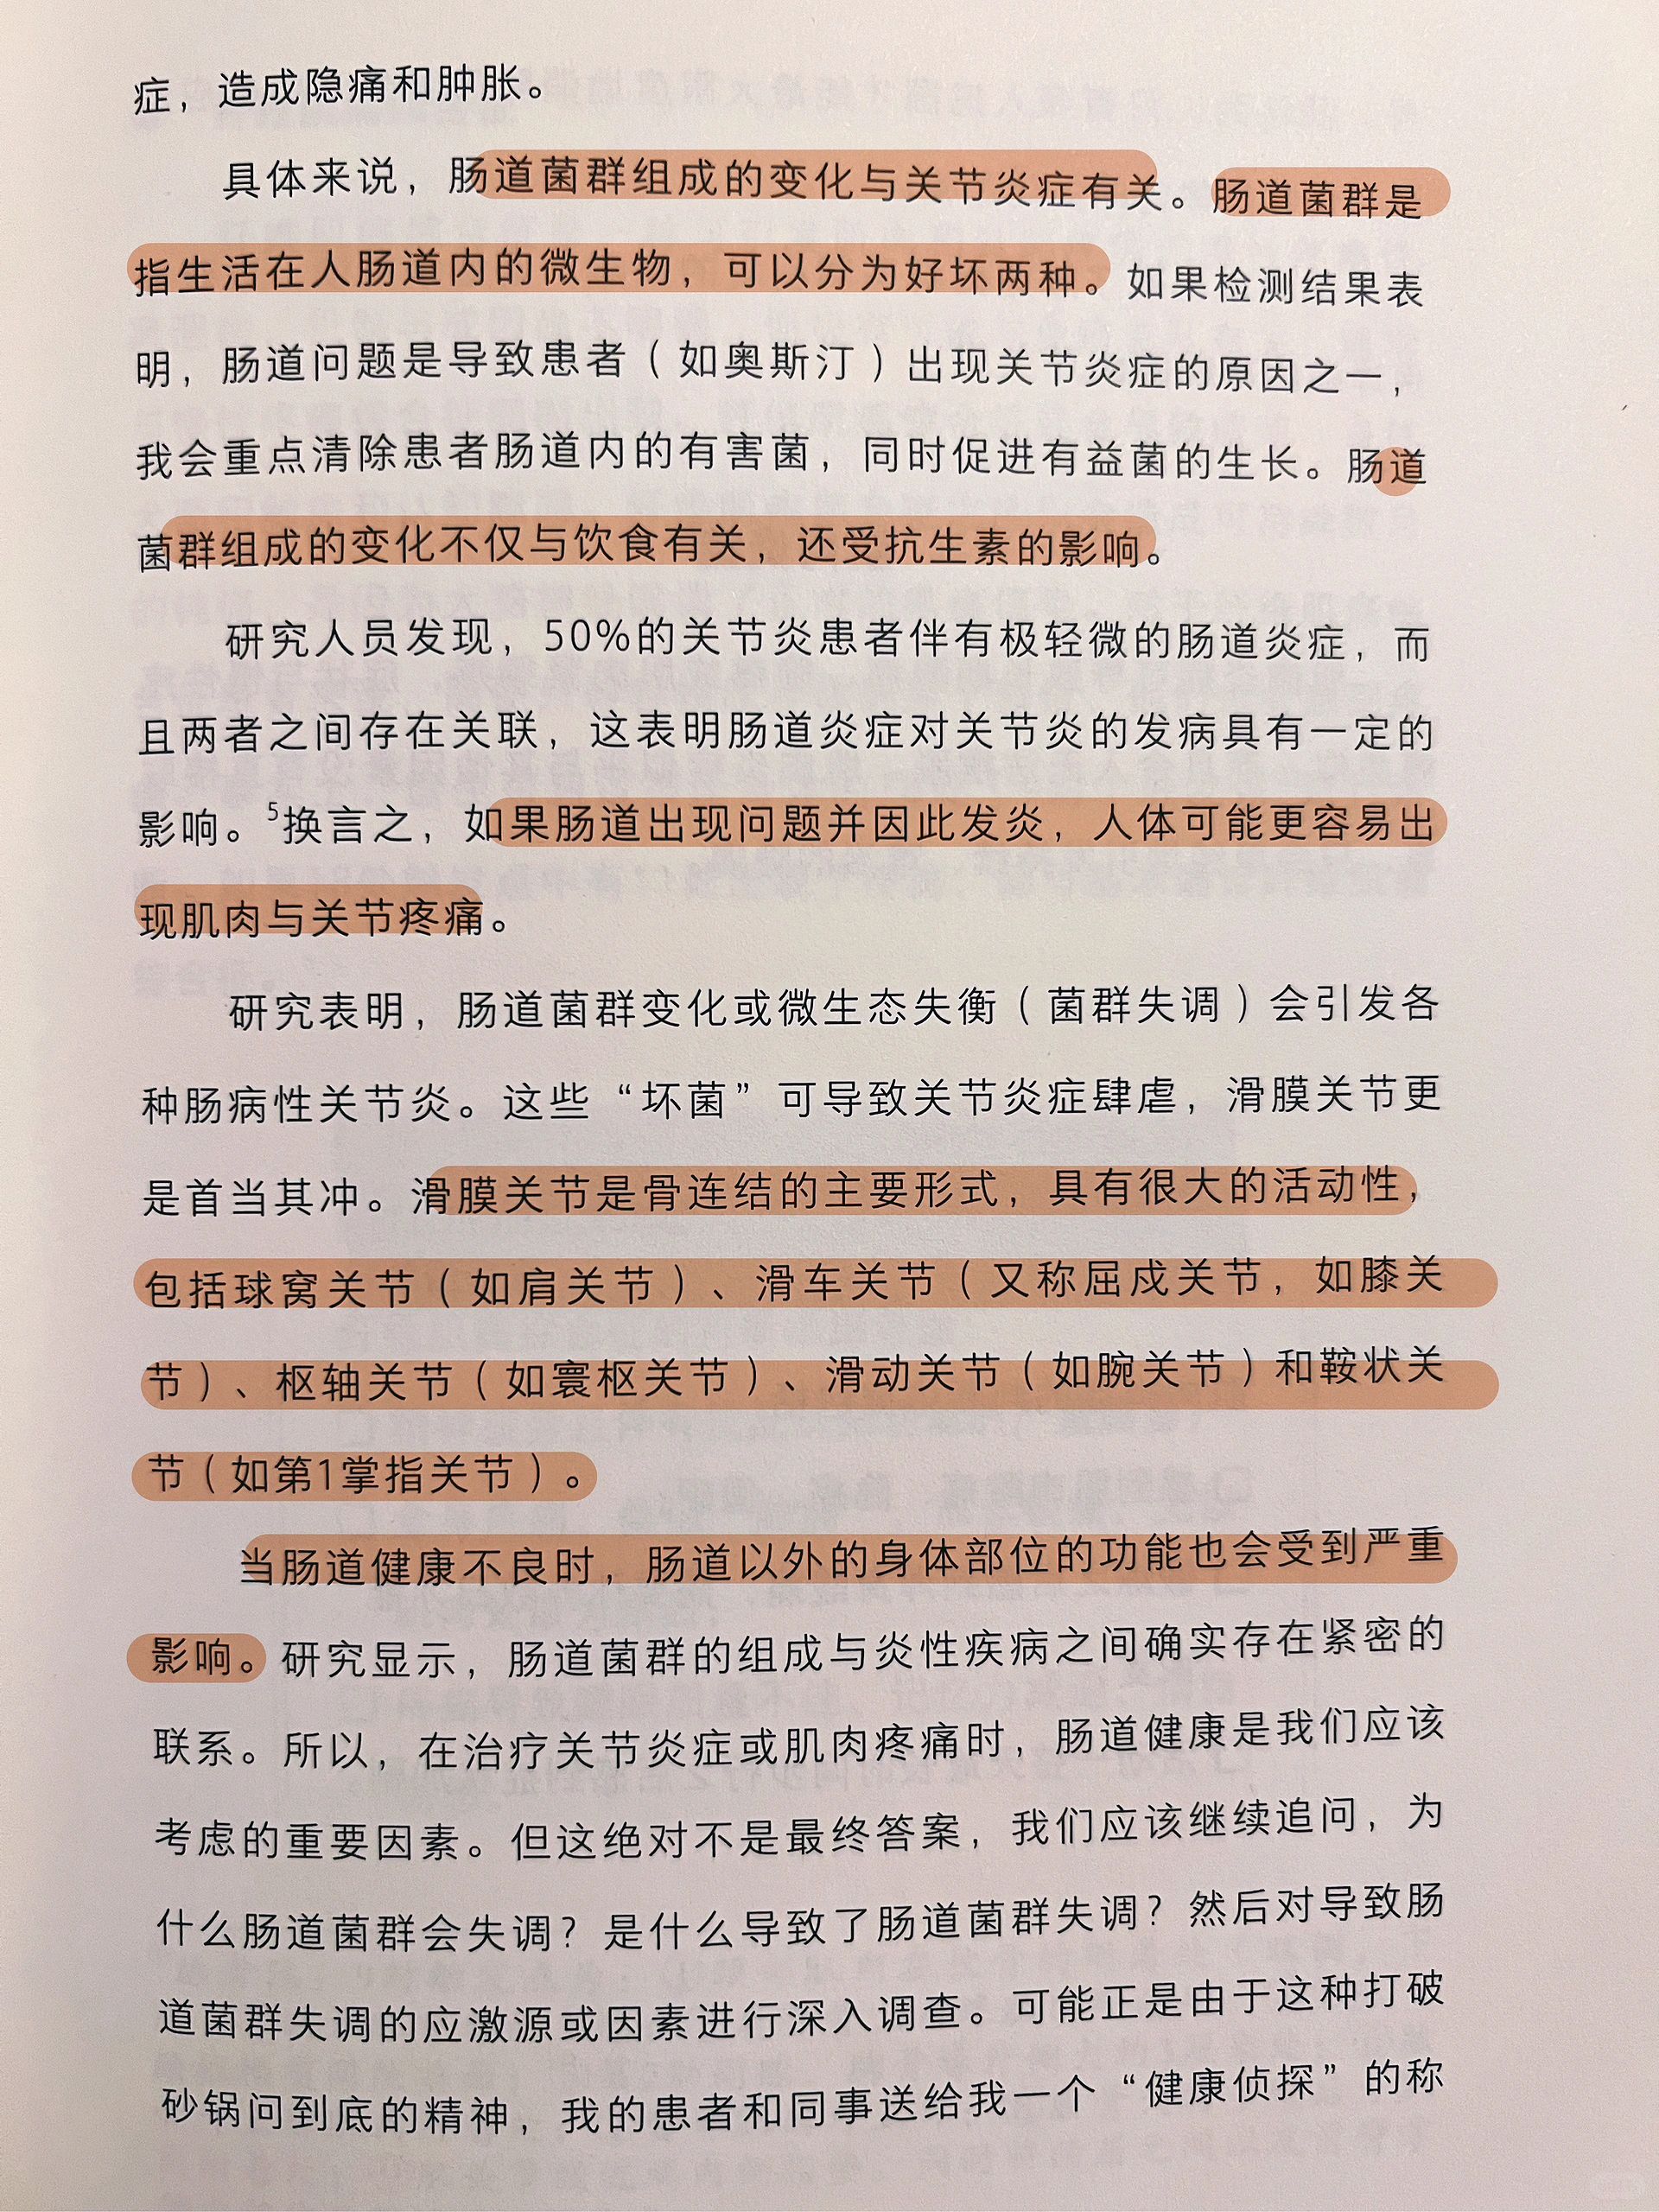 症，造成隐痛和肿胀。
具体来说，肠道菌群组成的变化与关节炎症有关。肠道菌群是
指生活在人肠道内的微生物，可以分为好坏两种。如果检测结果表
明，肠道问题是导致患者（如奥斯汀）出现关节炎症的原因之一，
我会重点清除患者肠道内的有害菌，同时促进有益菌的生长。肠道
菌群组成的变化不仅与饮食有关，还受抗生素的影响。
研究人员发现，50%的关节炎患者伴有极轻微的肠道炎症，而
且两者之间存在关联，这表明肠道炎症对关节炎的发病具有一定的
影响。5换言之，如果肠道出现问题并因此发炎，人体可能更容易出
现肌肉与关节疼痛。
研究表明，肠道菌群变化或微生态失衡（菌群失调）会引发各
种肠病性关节炎。这些“坏菌”可导致关节炎症肆虐，滑膜关节更
是首当其冲。滑膜关节是骨连结的主要形式，具有很大的活动性，
包括球窝关节（如肩关节）、滑车关节（又称屈戍关节，如膝关
节）、枢轴关节（如寰枢关节）、滑动关节（如腕关节）和鞍状关
节（如第1掌指关节）。
当肠道健康不良时，肠道以外的身体部位的功能也会受到严重
影响。研究显示，肠道菌群的组成与炎性疾病之间确实存在紧密的
联系。所以，在治疗关节炎症或肌肉疼痛时，肠道健康是我们应该
考虑的重要因素。但这绝对不是最终答案，我们应该继续追问，为
什么肠道菌群会失调？是什么导致了肠道菌群失调？然后对导致肠
道菌群失调的应激源或因素进行深入调查。可能正是由于这种打破
砂锅问到底的精神，我的患者和同事送给我一个“健康侦探”的称